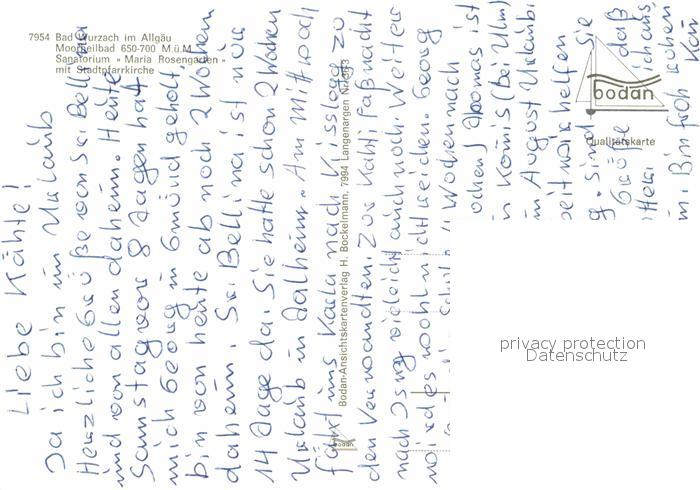 7954 Bad Wurzach im Allgäu
Moorheilbad 650-700 M.ü.M.
Sanatorium « Maria Rosengarten »
mit Stadtpfarrkirche
Liebe Käthe!
Da ich bin im Urlaub
Herzliche Grüße von Sr. Bellina
und von allen daheim. Heute
Samstag vor 8 Tagen hat
mich Georg in Gmünd geholt,
bin von heute ab noch 2 Wochen
daheim. Sr. Bellina ist nur
14 Tage da. Sie hatte schon 2 Wochen
Urlaub in Dalheim. Am Mittwoch
fährt uns Karla nach Kisslegg zu
den Verwandten. Zur Kathi Faßnacht
nach Isny vieleicht auch noch. Weiter
wird es wohl nicht reichen. Georg
Wochen nach
ochen) Thomas ist
n Komis (bei Ulm)
im August Urlaub
eit wir helfen
g. sind Sie
Grüße daß
ich aus
m. Bin froh
Bodan-Ansichtskartenverlag H. Bockelmann, 7994 Langenargen Nr.
bodan
bodan
Qualitätskarte
privacy protection
Datenschutz